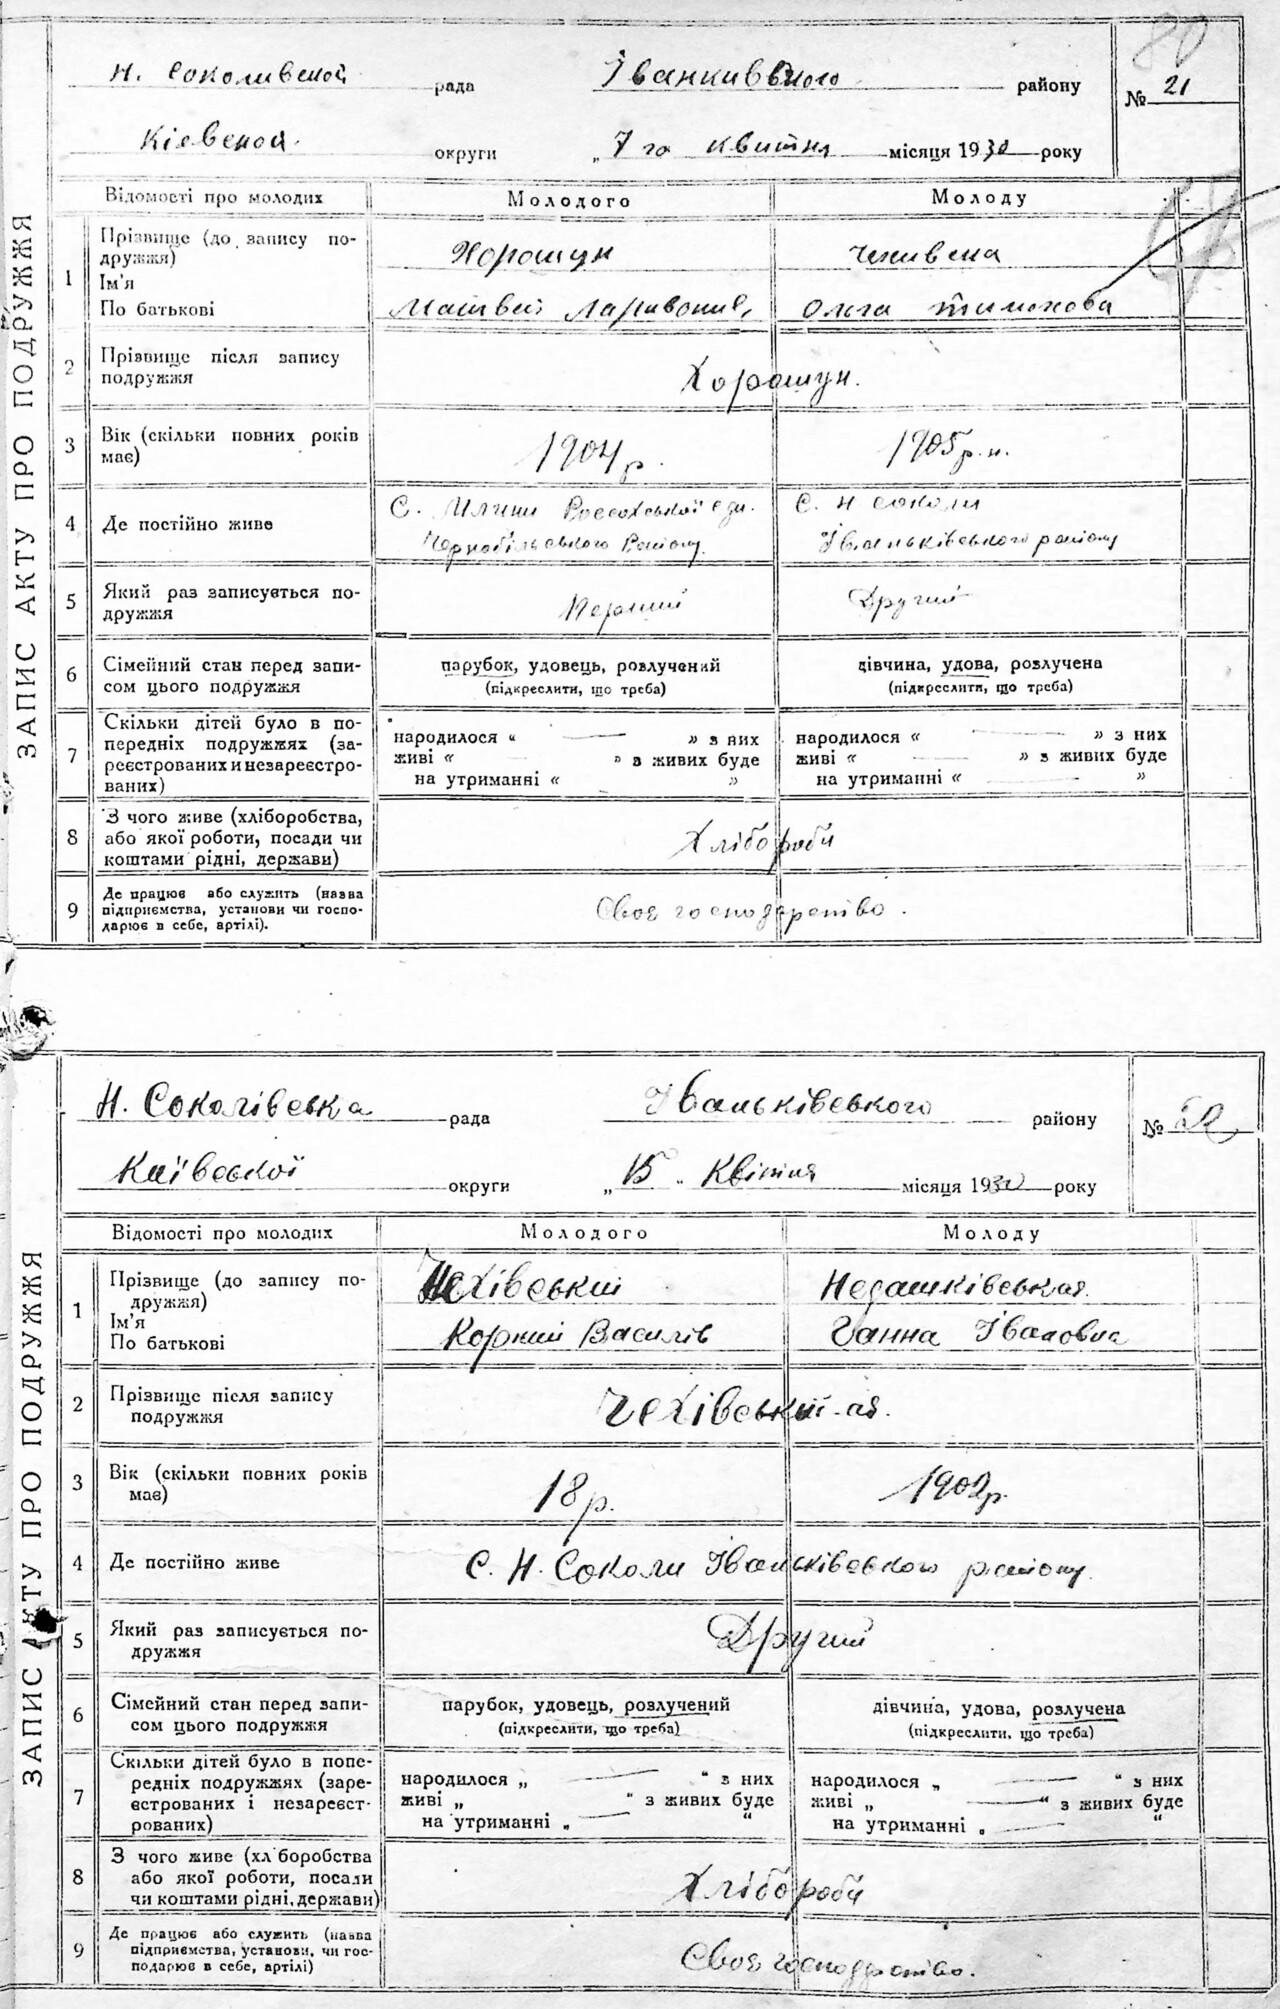 80
Н. Соколивской рада Іванкивського району № 21
Кіевской округи „ 7 го квитня місяця 1930 року
ЗАПИС АКТУ ПРО ПОДРУЖЖЯ
Відомості про молодих Молодого Молоду
1 Прізвище (до запису по-
дружжя) Хорошун
Ім'я
По батькові Матвей Ларивонив, Ольга Тимохова
2 Прізвище після запису
подружжя Хорошун.
3 Вік (скільки повних років
має) 1904 р. 1905 р. н.
4 Де постійно живе С. Млини Россохської с/ди. С. Н Соколи
Чернобільського Району Іваньківського району
5 Який раз записується по-
дружжя Перший Другий
6 Сімейний стан перед запи-
сом цього подружжя парубок, удовець, розлучений дівчина, удова, розлучена
(підкреслити, що треба) (підкреслити, що треба)
7 Скільки дітей було в по-
передніх подружжях (за-
реєстрованих и незареєстро-
ваних)
народилося “ — ” з них народилося “ — ” з них
живі “ ” з живих буде живі “ — ” з живих буде
на утриманні “ ” на утриманні “ — ”
8 З чого живе (хліборобства,
або якої роботи, посади чи
коштами рідні, держави) Хлібороби
9 Де працює або служить (назва
підприємства, установи чи госпо-
дарює в себе, артілі). Своє господарство.
Н. Соколівська рада Іваньківського району №
Київської округи „ 15 “ Квітня місяця 1930 року
ЗАПИС АКТУ ПРО ПОДРУЖЖЯ
Відомості про молодих Молодого Молоду
1 Прізвище (до запису по-
дружжя) Чехівський Недашківськая
Ім'я
По батькові Корний Василів Ганна Івановна
2 Прізвище після запису
подружжя Чехівський-ая.
3 Вік (скільки повних років
має) 18 р. 1902 р.
4 Де постійно живе С. Н. Соколи Іваньківського району
5 Який раз записується по-
дружжя Другий
6 Сімейний стан перед запи-
сом цього подружжя парубок, удовець, розлучений дівчина, удова, розлучена
(підкреслити, що треба) (підкреслити, що треба)
7 Скільки дітей було в попе-
редніх подружжях (заре-
єстрованих і незареєст-
рованих)
народилося „ — “ з них народилося „ — “ з них
живі „ “ з живих буде живі „ — “ з живих буде
на утриманні „ — “ на утриманні „ — “
8 З чого живе (хліборобства
або якої роботи, посади
чи коштами рідні, держави) Хлібороби
9 Де працює або служить (назва
підприємства, установи, чи гос-
подарює в себе, артілі) Своє господарство.